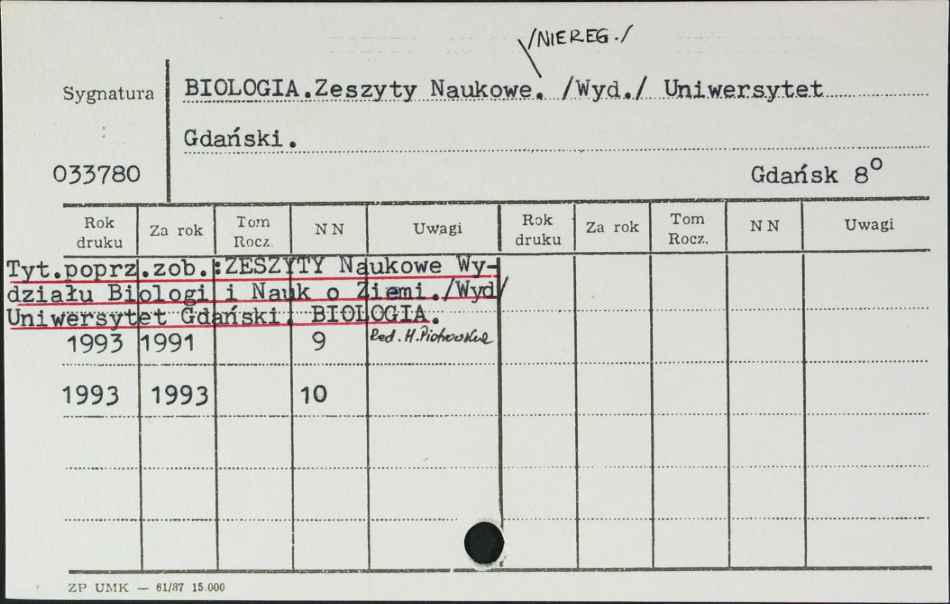 /NIEREG./
Sygnatura
BIOLOGIA.Zeszyty Naukowe. /Wyd./ Uniwersytet
Gdański.
033780
Gdańsk 8º
Rok druku Za rok Tom Rocz. NN Uwagi Rok druku Za rok Tom Rocz. NN Uwagi
Tyt.poprz.zob.:ZESZYTY Naukowe Wy-
działu Biologi i Nauk o Ziemi./Wyd/
Uniwersytet Gdański. BIOLOGIA.
1993 1991 9 Red. H. Piotrowska
1993 1993 10
ZP UMK — 61/87 15.000